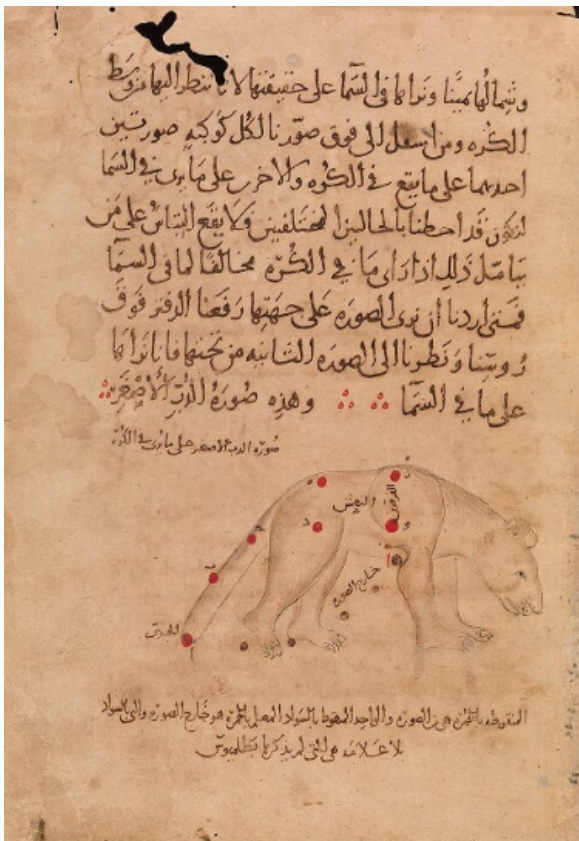 وشمالها يمينا ونراها في السما على حقيقتها لانا ننظر اليها من وسط
الكره ومن اسفل الى فوق صورنا لكل كوكبه صورتين
احديهما على ما يقع في الكره والاخرى على ما يرى في السما
لنكون قد احطنا بالحالين المختلفين فلا يقع التباس على من
يتامل ذلك اذا راى ما في الكره مخالفا لما في السما
فمتى اردنا ان نرى الصوره على جهتها رفعنا الدفتر فوق
روسنا ونظرنا الى الصوره الثانيه من تحتها فانا نراها
على ما في السما وهذه صوره الدب الاصغر
صوره الدب الاصغر على ما يرى في الكره
النعش
الفرقدين
خارج الصوره
الجدي
المنقوطه بالحمره هي من الصوره والواحد المنقوط بالسواد المعلم بالحمره هو خارج الصوره والتي بالسواد
بلا علامه هي التي لم يذكرها بطلميوس